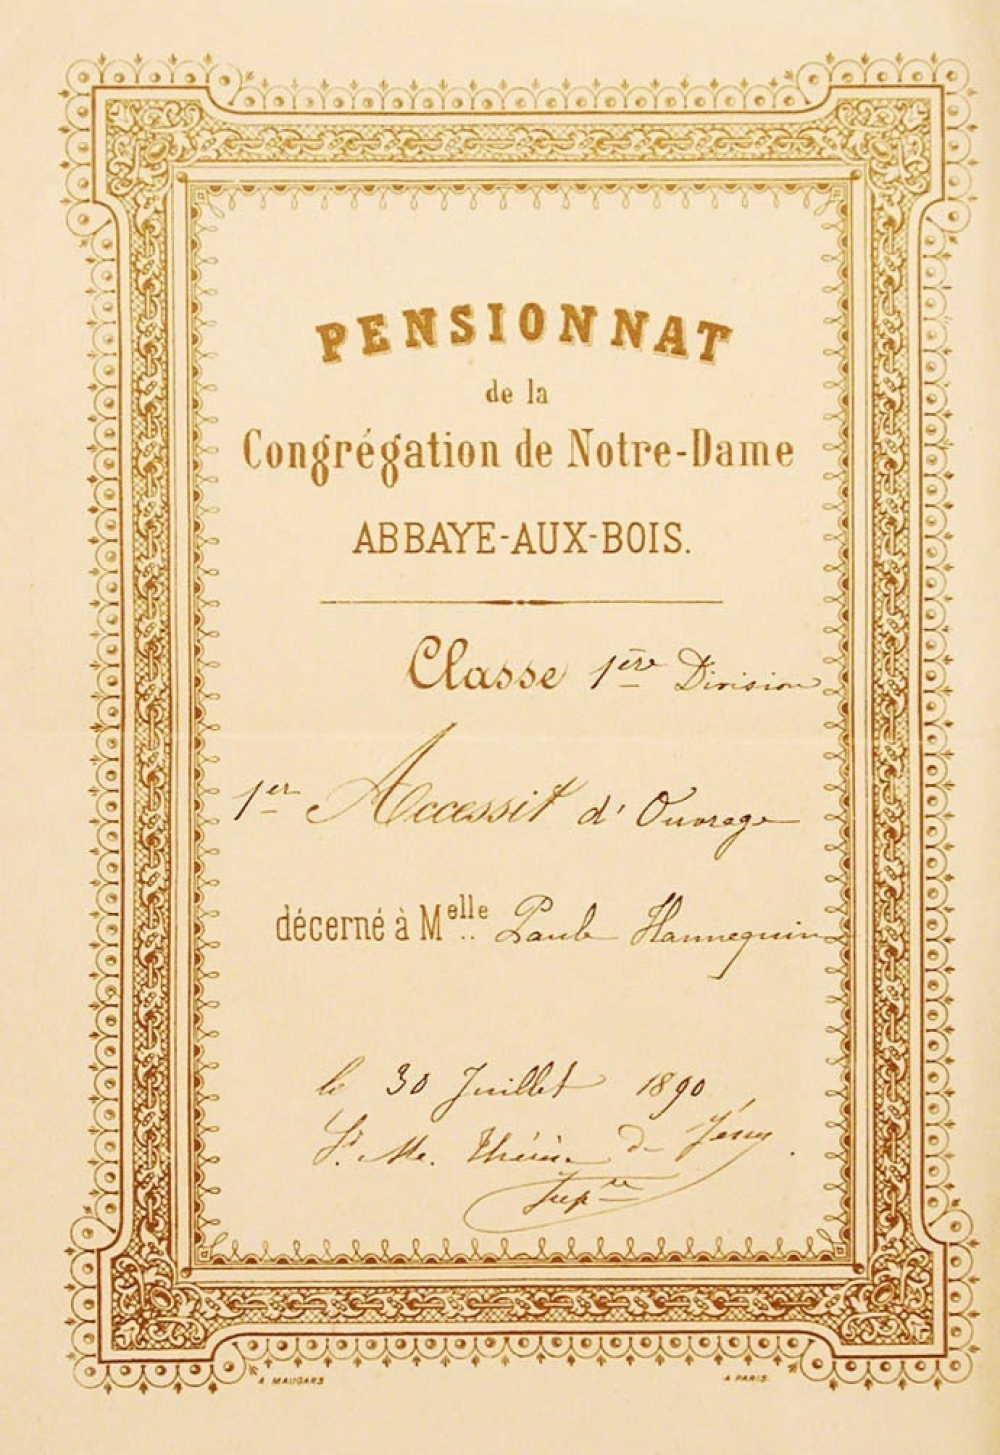 PENSIONNAT
de la
Congrégation de Notre-Dame
ABBAYE-AUX-BOIS.
Classe 1ère Division
1er Accessit d'Ouvrage
décerné à Melle Paule Hannequin
le 30 Juillet 1890
Sr. Me. Thérèse de Jésus.
Supre
A. MAUGARS
A PARIS.